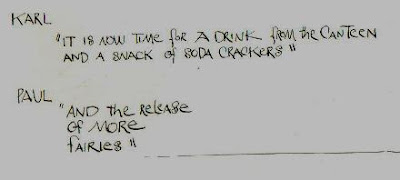 KARL
"IT IS NOW TIME for A DRINK from the CANTEEN
AND A SNACK of SODA CRACKERS"
PAUL
"AND the RELEASE
Of MORE
fAIRIES"